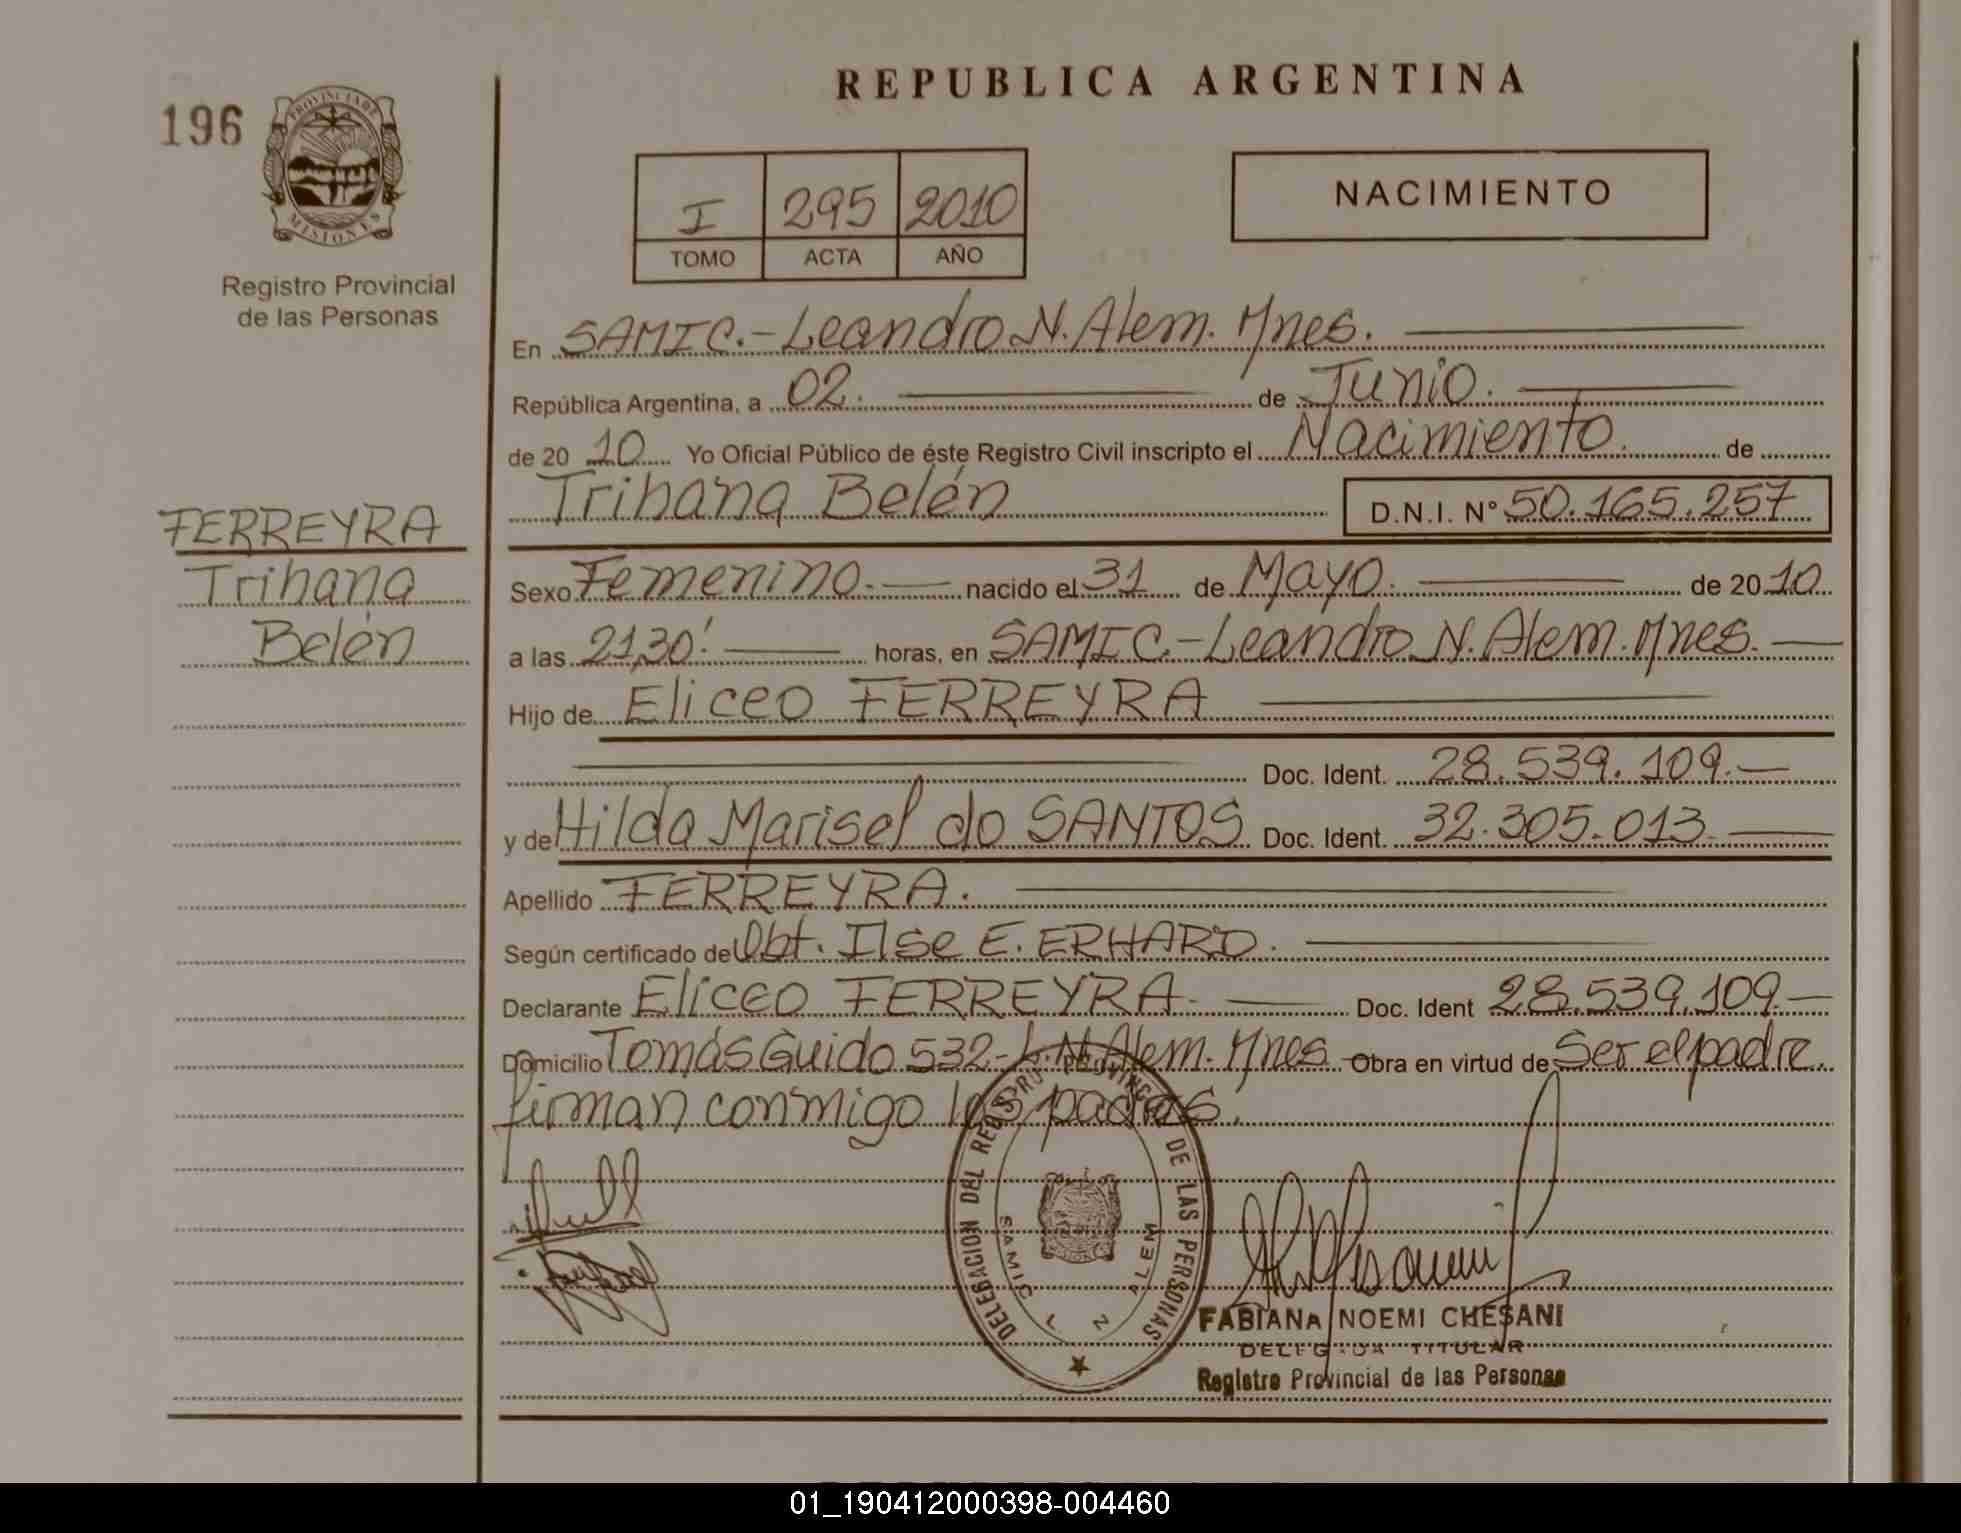 REPUBLICA ARGENTINA
196
PROVINCIA DE
MISIONES
Registro Provincial
de las Personas
I 295 2010
TOMO ACTA AÑO
NACIMIENTO
En SAMIC.-Leandro N. Alem. Mnes.
República Argentina, a 02. de Junio.
de 20 10 Yo Oficial Público de éste Registro Civil inscripto el Nacimiento. de
Trihana Belén D.N.I. N° 50.165.257
FERREYRA
Trihana
Belén
Sexo Femenino.- nacido el 31 de Mayo. de 20 10
a las 21,30'. horas, en SAMIC.-Leandro N. Alem. Mnes.
Hijo de Eliceo FERREYRA
Doc. Ident. 28.539.109.-
y de Hilda Marisel do SANTOS Doc. Ident. 32.305.013.
Apellido FERREYRA.
Según certificado de Obt. Ilse E. ERHARD.
Declarante Eliceo FERREYRA. Doc. Ident 28.539.109.-
Domicilio Tomás Guido 532.-L.N.Alem. Mnes. Obra en virtud de Ser el padre.
firman conmigo los padres.
DELEGACION DEL REGISTRO PROVINCIAL DE LAS PERSONAS
SAMIC L N ALEM
FABIANA NOEMI CHESANI
DELEGADA TITULAR
Registro Provincial de las Personas
01_190412000398-004460